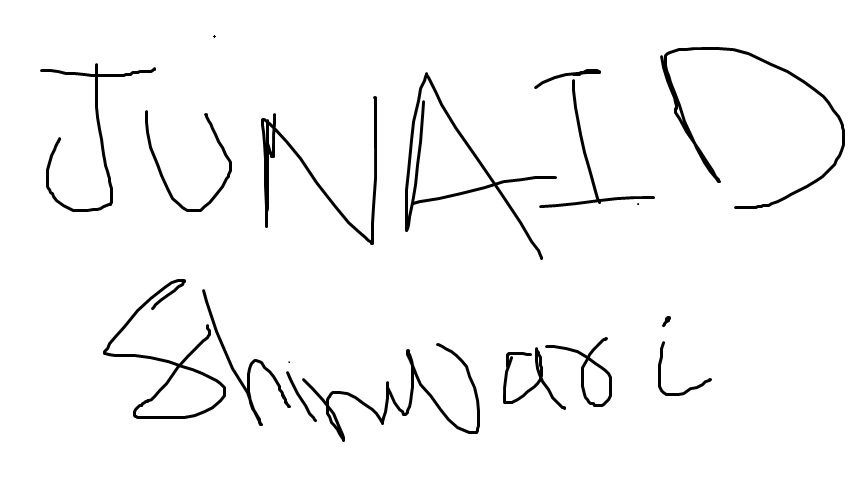 JUNAID
Shinwari